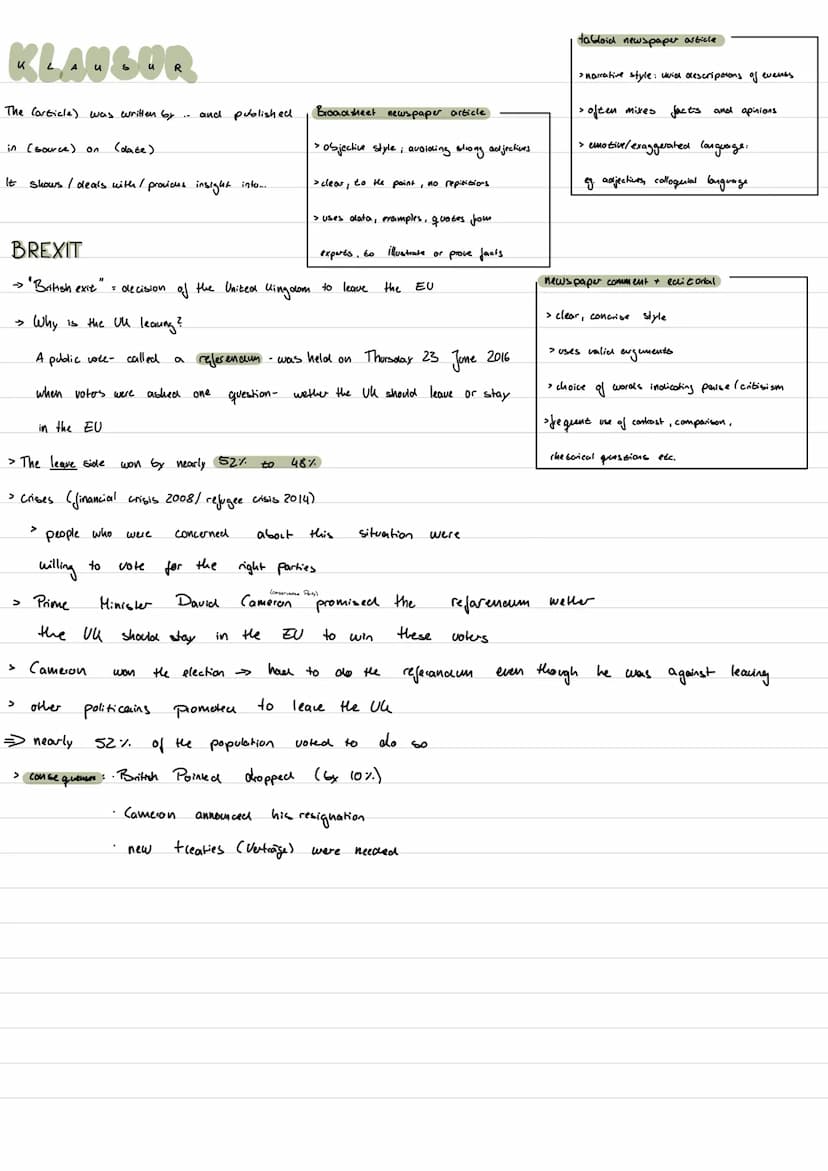 KLAUSUR
The (article) was written by .. and published
in (source) on (date)
It shows / deals with / provides insight into...
Broadsheet newspaper article
> objective style, avoiding strong adjectives
> clear, to the point, no repitions
> uses data, examples, quotes from
experts. to illustrate or prove facts
tabloid newspaper article
> narrative style: vivid descriptions of events
> often mixes facts and opinions
> emotive/exaggerated language:
eg. adjectives, colloquial language
BREXIT
→ "British exit" = decision of the United Kingdom to leave the EU
→ Why is the UK leaving?
A public vote- called a referendum - was held on Thursday 23 June 2016
when voters were asked one question- wether the UK should leave or stay
in the EU
> The leave side won by nearly 52% to 48%
> crises (financial crisis 2008/ refugee crisis 2014)
> people who were concerned about this situation were
willing to vote for the right parties
(Conservative Party)
> Prime Minister David Cameron promised the referendum wether
the UK should stay in the EU to win these voters
> Cameron won the election → had to do the referandum even though he was against leaving
> other politicains promoted to leave the UK
⇒ nearly 52% of the population voted to do so
> consequenses: · British Pound dropped (by 10%)
· Cameron announced his resignation
· new treaties (Verträge) were needed
newspaper comment + editorial
> clear, concise style
> uses valid arguments
> choice of words indicating praise / critisism
> frequent use of contrast, comparison,
rhetorical questions etc.